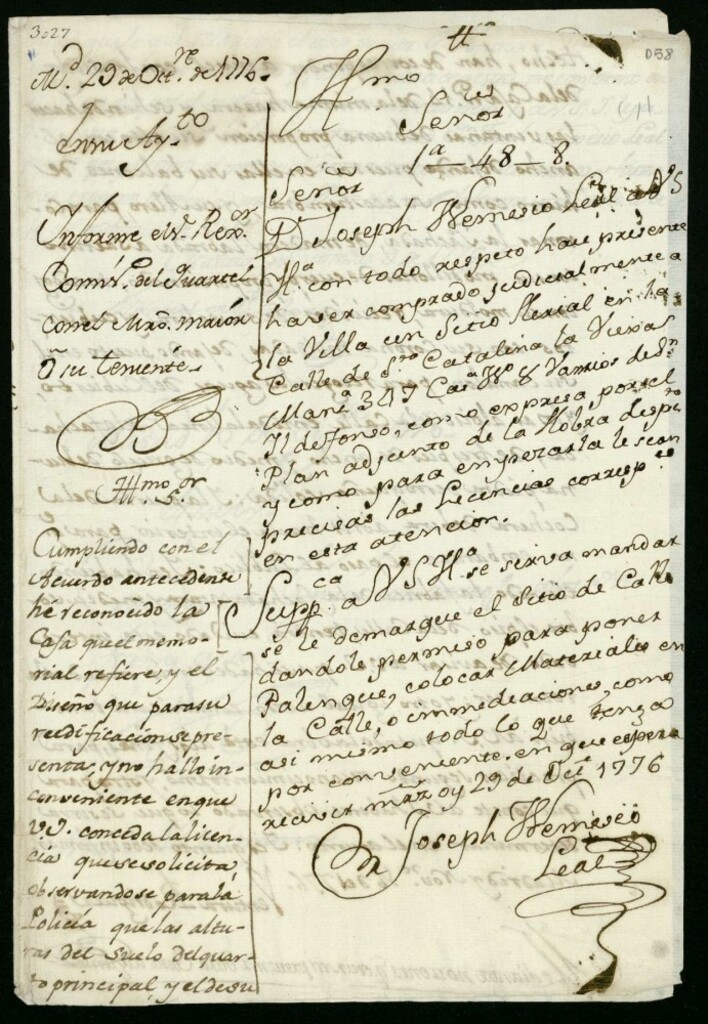 3027
058
M.d 29 de Oct.re de 1776.
En su Ay.to
Informe el S.r Rex.or
Comis.o del Quartel
con el Mro. maior
ó su teniente.
Ill.mo S.or
Cumpliendo con el
Acuerdo antecedente
hé reconocido la
Casa que el memo-
rial refiere, y el
Diseño que para su
reedificacion se pre-
senta, y no hallo in-
conveniente en que
V.S. conceda la licen-
cia que se solicita,
observandose para la
Policía que las altu-
ras del suelo del quar-
to principal, y el de su
H.mo
Señor
1a_48_8.
Señor
D.n Joseph Nemesio Leal a V.S
H.a con todo respeto hace presente
haver comprado judicialmente a
la Villa un Sitio Herial en la
Calle de S.ta Catalina la Vieja
Manz.a 347 Cas.a N.o 8 Varrios de S.n
Ildefonso, como expresa por el
Plan adjunto de la Hobra
y como para empezarla le sean
precisas las Licencias corresp.es
en esta atencion.
Supp.ca a V S H.a se sirva mandar
se le demarque el Sitio de Calle
dandole permiso para poner
Palenque, colocar Materiales en
la Calle, o inmediaciones, como
asi mismo todo lo que tenga
por conveniente. en que espera
recivir mrd. oy 29 de Oct.e 1776
Joseph Nemesio
Leal